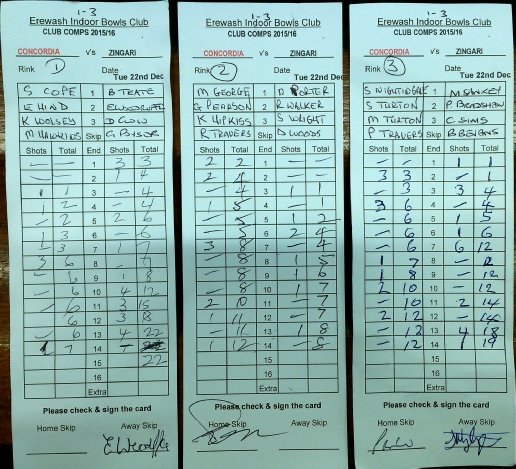 1-3
Erewash Indoor Bowls Club
CLUB COMPS 2015/16
CONCORDIA V's ZINGARI
Rink 1 Date
Tue 22nd Dec
S COPE 1 B TEATE
E HIND 2
K WOOLSEY 3 D CLOW
M HAWKINS Skip
Shots Total Shots Total
- - 1 3 3
- - 2 1 4
1 1 3 - 4
1 2 4 - 4
- 2 5 2 6
1 3 6 - 6
- 3 7 1 7
3 6 8 - 7
- 6 9 1 8
- 6 10 4 12
- 6 11 3 15
- 6 12 3 18
- 6 13 4 22
1 7 14 -
15 22
16
Extra
Please check & sign the card
Home Skip Away Skip
1-3
Erewash Indoor Bowls Club
CLUB COMPS 2015/16
CONCORDIA V's ZINGARI
Rink 2 Date
Tue 22nd Dec
M GEORGE 1 D PORTER
G PEARSON 2 R WALKER
K HIPKISS 3 S WRIGHT
R TRAVERS Skip D WOODS
Shots Total Shots Total
2 2 1 - -
2 4 2 - -
- 4 3 1 1
1 5 4 - 1
- 5 5 1 2
- 5 6 2 4
3 8 7 - 4
- 8 8 1 5
- 8 9 1 6
- 8 10 1 7
2 10 11 - 7
1 11 12 - 7
- 11 13 1 8
1 12 14 - 8
15
16
Extra
Please check & sign the card
Home Skip Away Skip
1-3
Erewash Indoor Bowls Club
CLUB COMPS 2015/16
CONCORDIA V's ZINGARI
Rink 3 Date
Tue 22nd Dec
S NIGHTINGALE 1 M
S TURTON 2 P BRADSHAW
M TURTON 3 C SIMS
P TRAVERS Skip B BEVANS
Shots Total Shots Total
- - 1 1 1
3 3 2 - 1
- 3 3 3 4
3 6 4 - 4
- 6 5 1 5
- 6 6 1 6
- 6 7 6 12
1 7 8 - 12
1 8 9 - 12
2 10 10 - 12
- 10 11 2 14
2 12 12 - 14
- 12 13 4 18
- 12 14 1 19
15
16
Extra
Please check & sign the card
Home Skip Away Skip